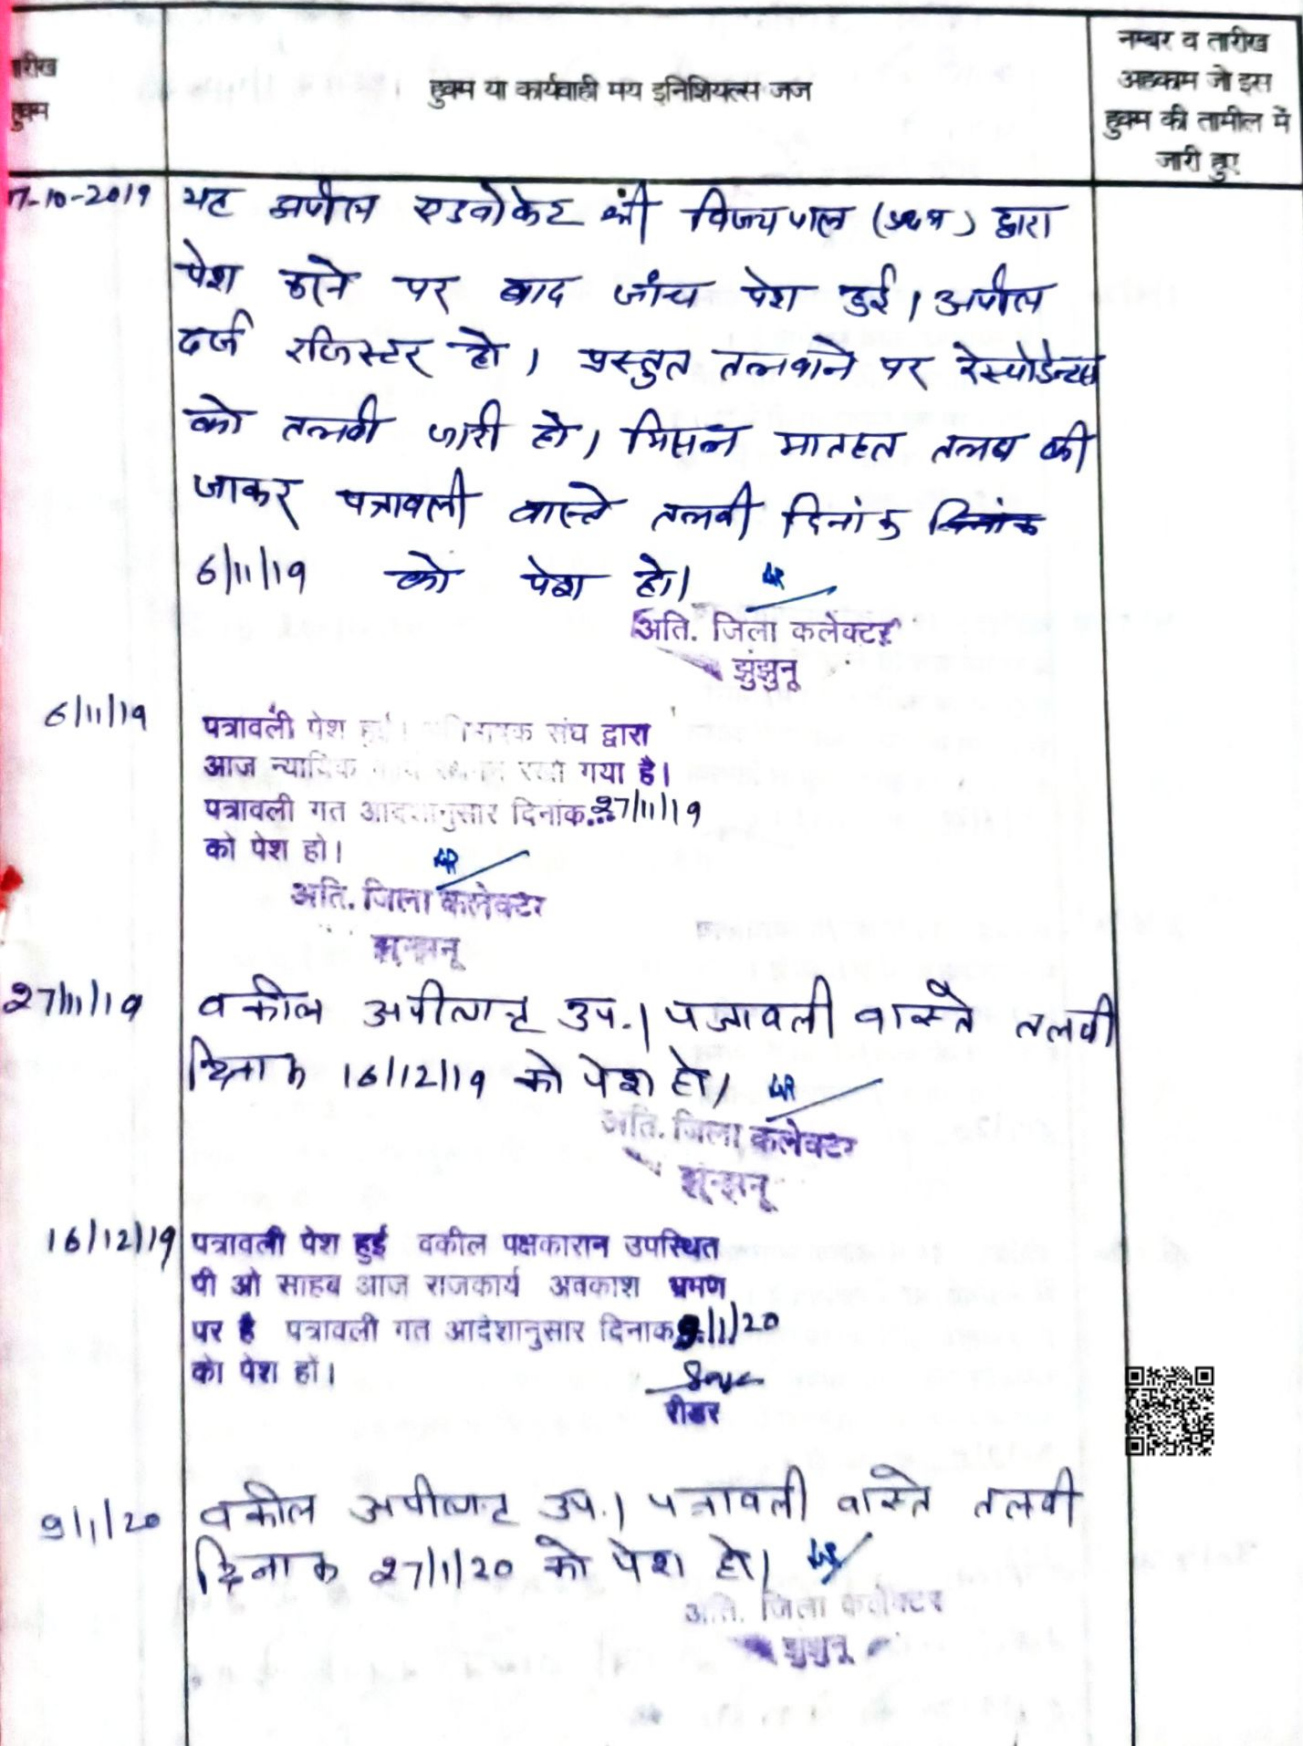 तारीख
हुक्म
हुक्म या कार्यवाही मय इनिशियल्स जज
नम्बर व तारीख
अहकाम जो इस
हुक्म की तामील में
जारी हुए
17-10-2019
यह अपील एडवोकेट श्री विजयपाल द्वारा
पेश होने पर बाद जांच पेश हुई। अपील
दर्ज रजिस्टर हो। प्रस्तुत तलवाने पर रेस्पोडेन्टस
को तलवी जारी हो। मिसल मातहत तलब की
जाकर पत्रावली वास्ते तलवी दिनांक दिनांक
6/11/19 को पेश हो।
अति. जिला कलेक्टर
झुंझुनू
6/11/19
पत्रावली पेश हुई। अभिभाषक संघ द्वारा
आज न्यायिक रखा गया है।
पत्रावली गत आदेशानुसार दिनांक..27/11/19
को पेश हो।
अति. जिला कलेक्टर
झुन्झुनू
27/11/19
वकील अपीलान्ट उप.। पत्रावली वास्ते तलवी
दिनांक 16/12/19 को पेश हो।
अति. जिला कलेक्टर
झुन्झुनू
16/12/19
पत्रावली पेश हुई वकील पक्षकारान उपस्थित
पी ओ साहब आज राजकार्य अवकाश भ्रमण
पर है पत्रावली गत आदेशानुसार दिनाक 9/1/20
को पेश हो।
रीडर
9/1/20
वकील अपीलान्ट उप.। पत्रावली वास्ते तलवी
दिनांक 27/1/20 को पेश हो।
अति. जिला कलेक्टर
झुंझुनू